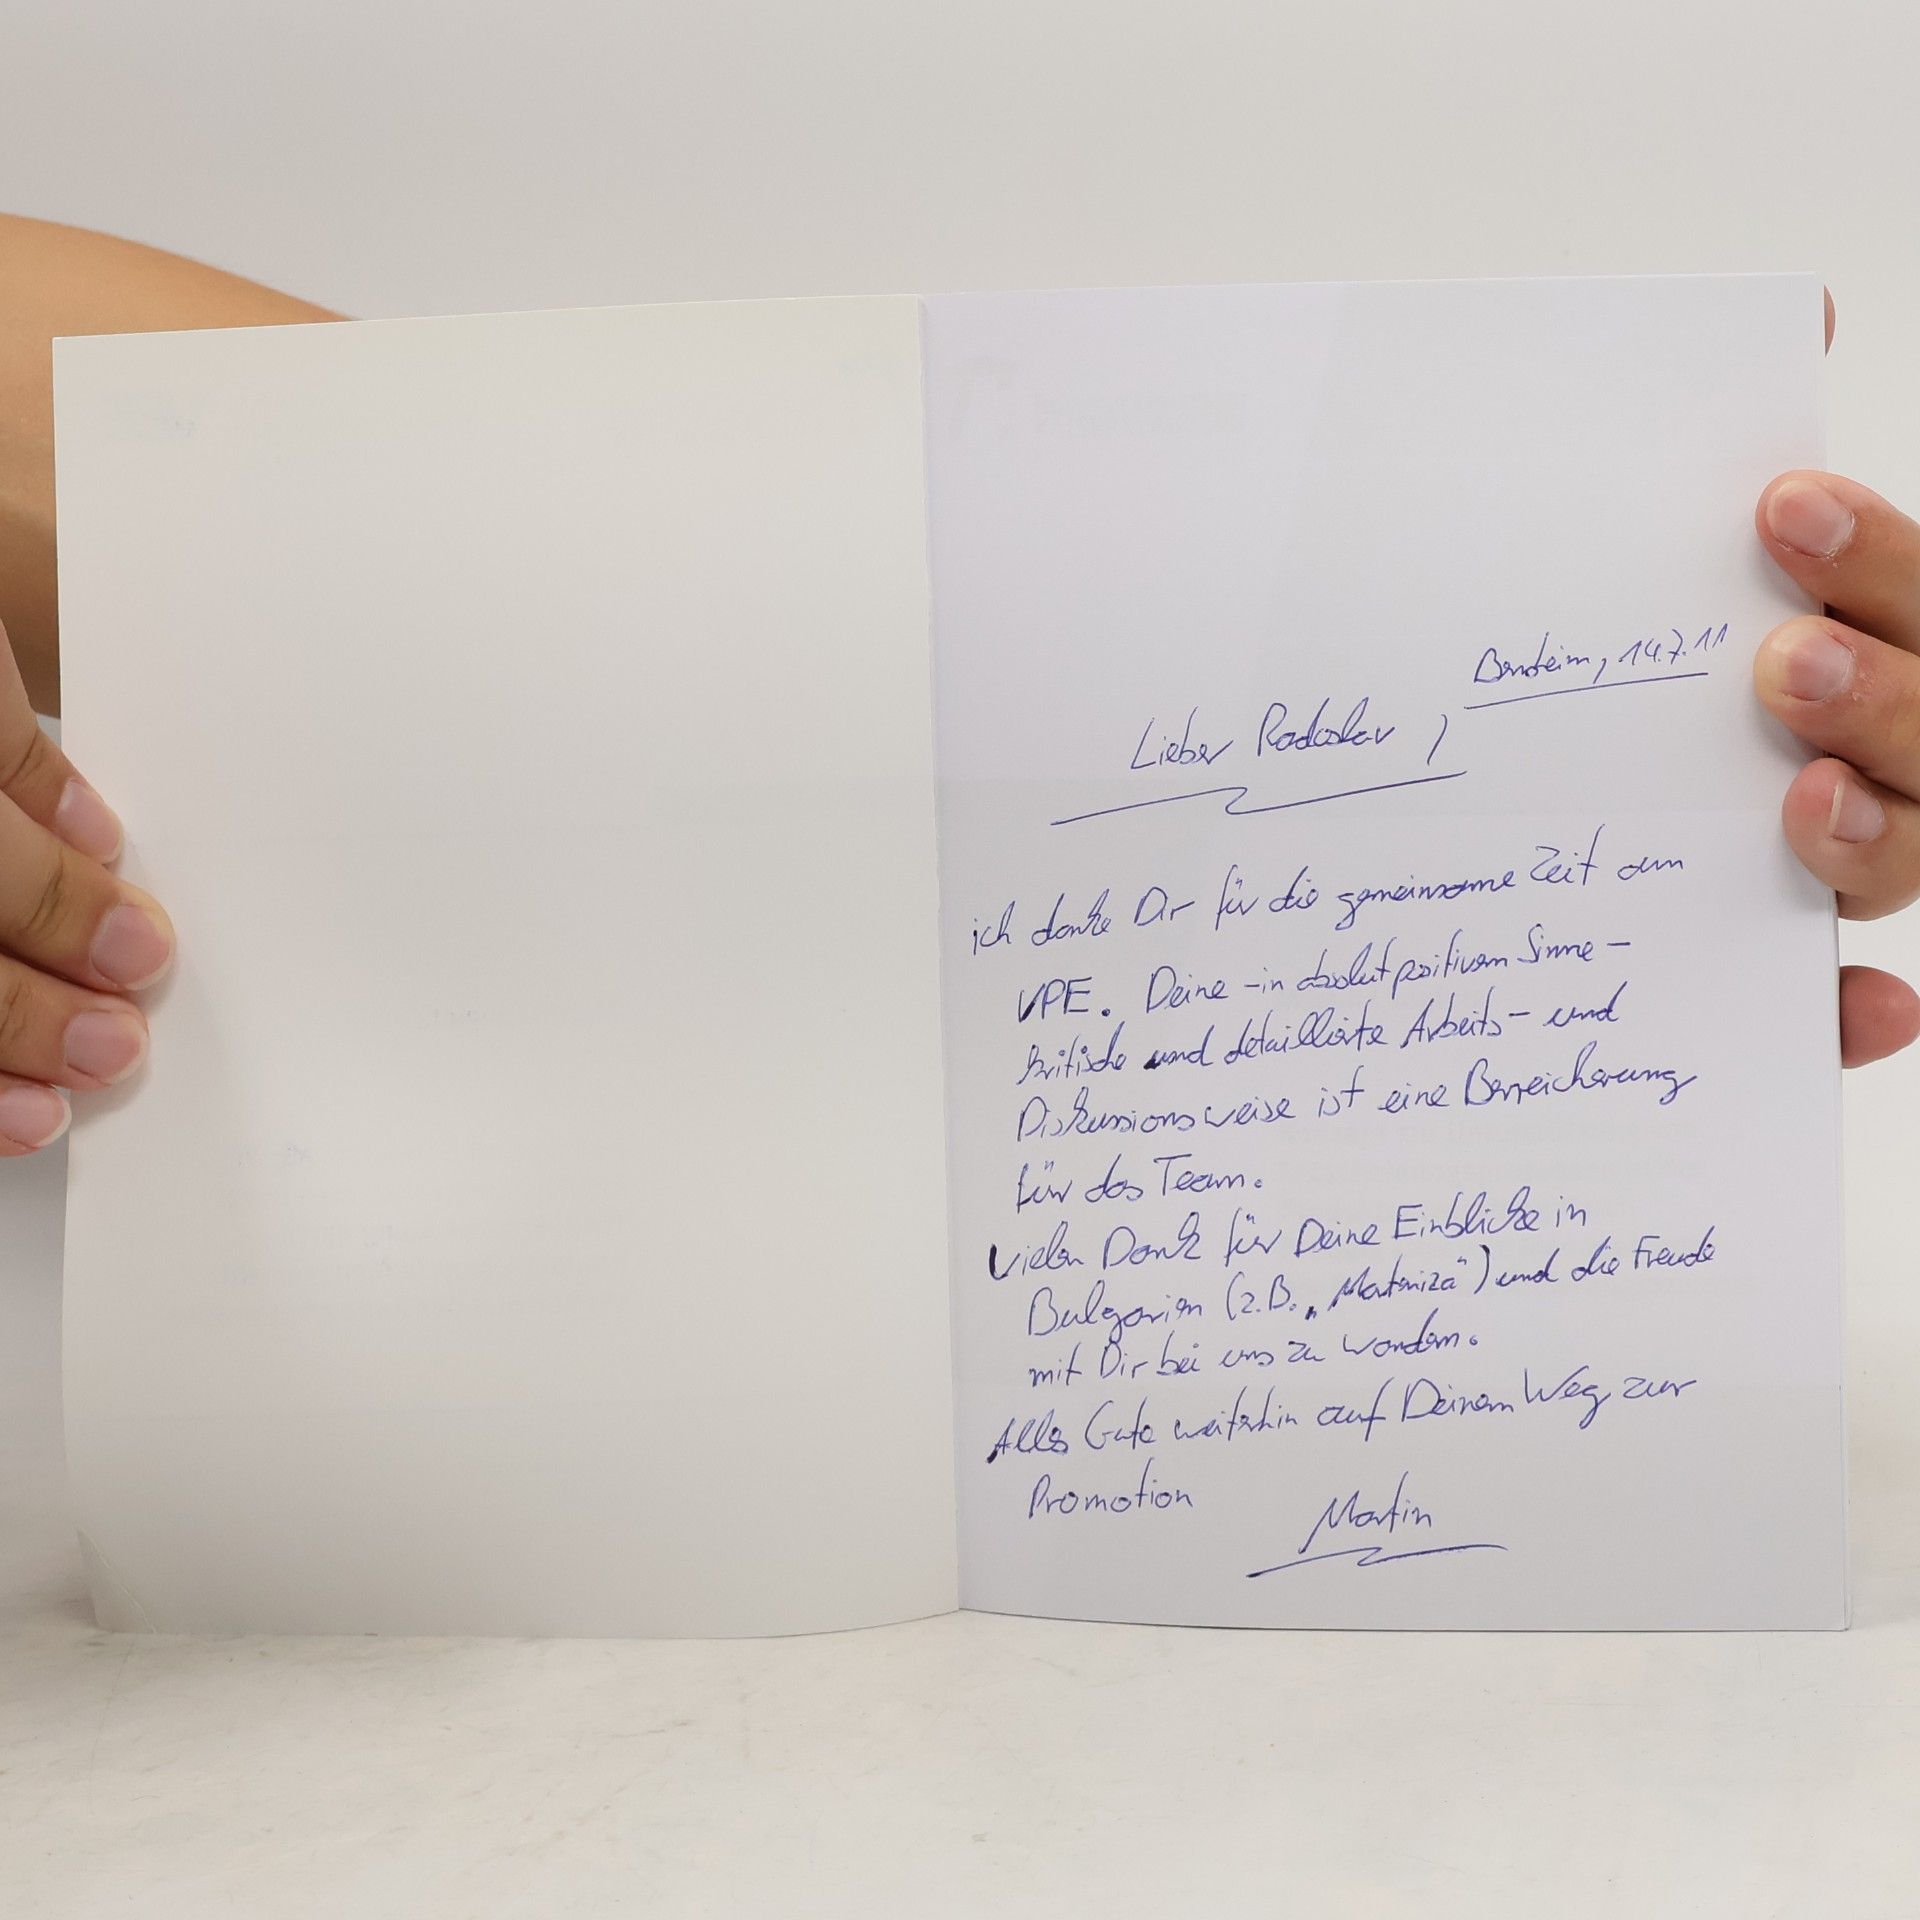 Bensheim, 14.7.11
Lieber Radoslav,
ich danke Dir für die gemeinsame Zeit am
VPE. Deine - in absolut positivem Sinne -
kritische und detaillierte Arbeits- und
Diskussionsweise ist eine Bereicherung
für das Team.
Vielen Dank für Deine Einblicke in
Bulgarien (z.B. „Marteniza“) und die Freude
mit Dir bei uns zu wandern.
Alles Gute weiterhin auf Deinem Weg zur
Promotion
Martin